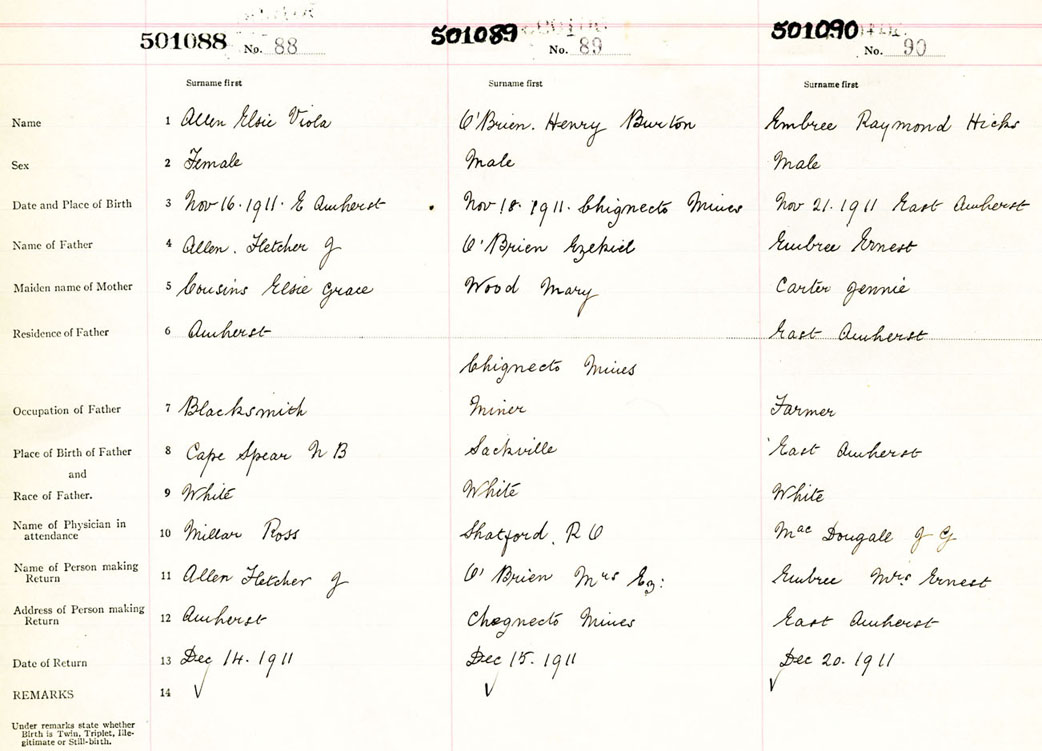 501088 No. 88 501089 No. 89 501090 No. 90
Surname first Surname first Surname first
Name 1 Allen Elsie Viola O'Brien. Henry Burton Embree Raymond Hicks
Sex 2 Female Male Male
Date and Place of Birth 3 Nov 16. 1911. E Amherst Nov 18. 1911. Chignecto Mines Nov 21. 1911 East Amherst
Name of Father 4 Allen. Fletcher J O'Brien Ezekiel Embree Ernest
Maiden name of Mother 5 Cousins Elsie Grace Wood Mary Carter Jennie
Residence of Father 6 Amherst East Amherst
Chignecto Mines
Occupation of Father 7 Blacksmith Miner Farmer
Place of Birth of Father 8 Cape Spear N B Sackville East Amherst
and
Race of Father. 9 White White White
Name of Physician in
attendance 10 Millar Ross Shatford. R O Mac Dougall J G
Name of Person making
Return 11 Allen Fletcher J O'Brien Mrs Ez: Embree Mrs. Ernest
Address of Person making
Return 12 Amherst Chegnecto Mines East Amherst
Date of Return 13 Dec 14. 1911 Dec 15. 1911 Dec 20. 1911
REMARKS 14 √ √ √
Under remarks state whether
Birth is Twin, Triplet, Ille-
gitimate or Still-birth.